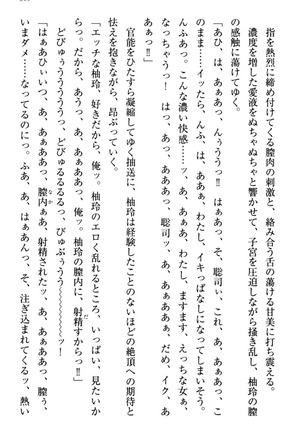 指を熱烈に締め付けてくる膣肉の刺激と、絡み合う舌の蕩ける甘美に打ち震え、
濃度を増した愛液をぬちゃぬちゃと響かせて、子宮を圧迫しながら掻き乱し、柚玲の膣
の感触に蕩けてゆく。
「あひ、は、あぁあっ、んぅううっ‼　はぁあっ、そ、聡司ぃ、これ、あ、あぁあっ、こ
のまま……イッたら、んふ、は、ああぁ、わたし、イキっぱなしになってしまいそう。
んふあっ。こんな濃い快感……っ、あ、ああぁっ、わたし、ますます、えっちな女ぁ、
なっちゃうっ！　はっ、あっ、あああっ、聡司っ、あ、ああああぁ、だめ、イク、あ
あぁっ‼」
官能をひたすら凝縮してゆく抽送に、柚玲は経験したことのないほどの絶頂への期待と
怯えを抱きながら、昂ぶっていく。
「エッチな柚玲、好きだから、俺ッ。柚玲のエロく乱れるところ、いっぱい、見たいか
らっ。だから、あうっ、あ、あぁああっ、俺ッ。柚玲の膣内に、射精すからっ‼」
どびゅぅうううううっ、どびゅるるるるっ、びゅぶぅうう〜〜〜〜〜〜っ！
「はぁああひぃいっ、あ、ああああっ、膣内ぁ、射精されたッ、あ、あぁああっ、膣ぅ、
いまダメ……なってるのにっ。ふあ、あ、はぁあんっ、そ、注ぎ込まれてるっ、熱い